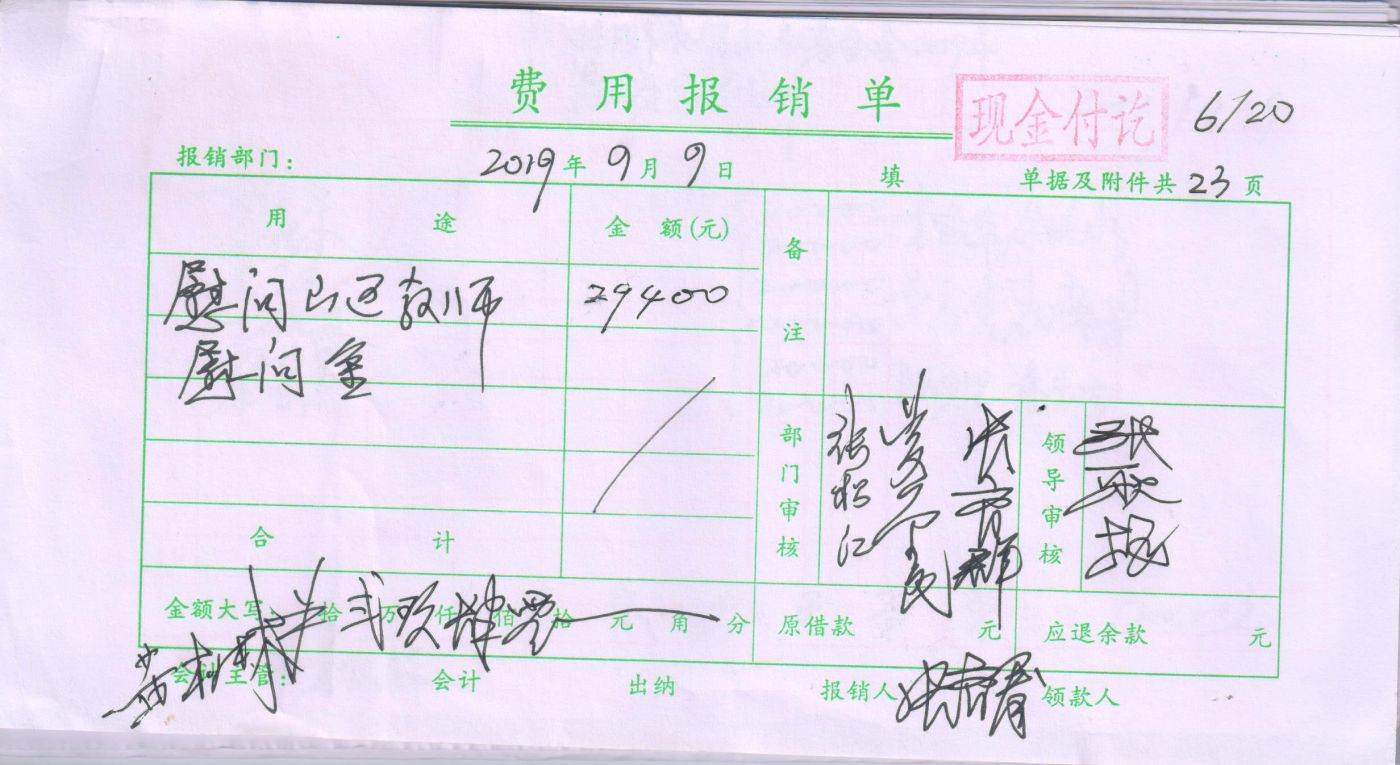 费用报销单 现金付讫 6/20
报销部门： 2019年9月9日 填 单据及附件共23页
用途 金额(元) 备注
慰问山区教师 29400
慰问金
部门审核 张松江 领导审核
合计
金额大写 拾万贰仟玖佰肆拾零元角分 原借款 元 应退余款 元
会计主管： 会计 出纳 报销人 领款人